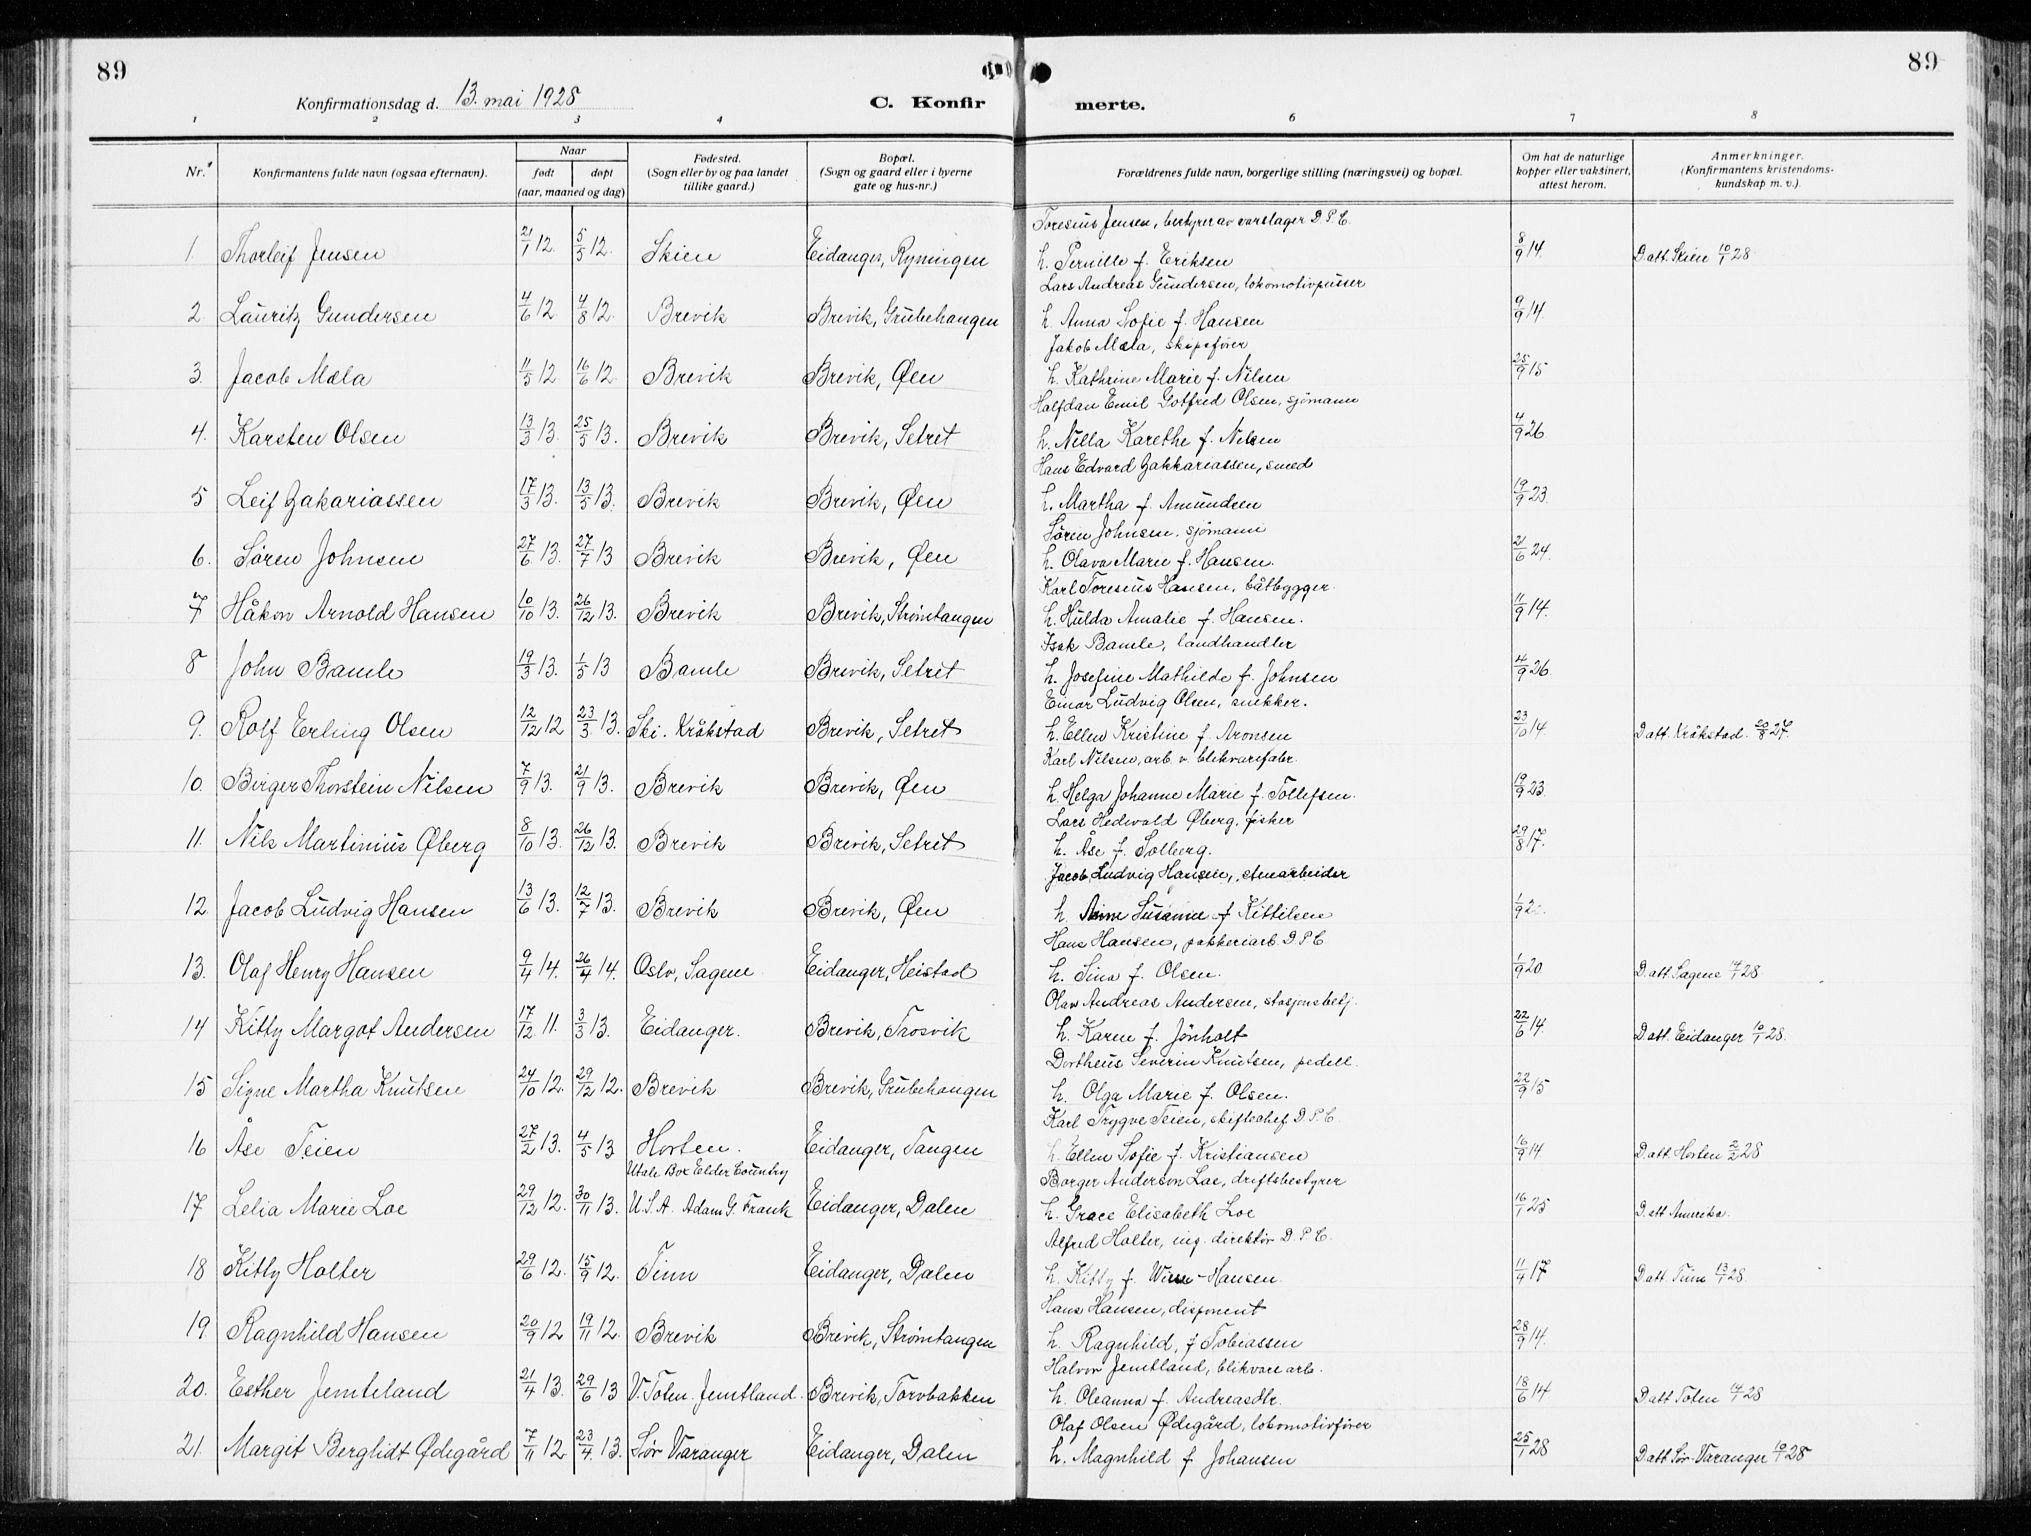 89
89
Konfirmationsdag d. 13. mai 1928
C. Konfir merte.
1 2 3 4 6 7 8
Nr. Konfirmantens fulde navn (ogsaa efternavn). Naar født døpt (aar, maaned og dag) Fødested. (Sogn eller by og paa landet tillike gaard.) Bopæl. (Sogn og gaard eller i byerne gate og hus-nr.) Forældrenes fulde navn, borgerlige stilling (næringsvei) og bopæl. Om hat de naturlige kopper eller vaksinert, attest herom. Anmerkninger. (Konfirmantens kristendoms-kundskap m. v.)
Toresius Jensen, bestyrer av varelager D.P.C.
1. Thorleif Jensen 21/1 12. 5/5 12. Skien Eidanger, Rynningen h. Pernille f. Eriksen 8/9 14. D att. Skien 10/1 28.
Lars Andreas Gundersen, lokomotivpusser
2. Lauritz Gundersen 4/6 12 4/8 12. Brevik Brevik, Grubehaugen h. Anna Sofie f. Hansen 9/9 14.
Jakob Mæla, skipsfører
3. Jacob Mæla 11/5 12 16/6 12. Brevik Brevik, Øen h. Kathrine Marie f. Nilsen 25/9 15
Halfdan Emil Gotfred Olsen, sjømann
4. Karsten Olsen 13/3 13. 25/5 13. Brevik Brevik, Setret h. Nilla Karethe f. Nilsen 4/9 26
Hans Edvard Zakkariassen, smed
5 Leif Zakariassen 17/3 13. 13/5 13. Brevik Brevik, Øen h. Martha f. Amundsen 19/9 23.
Søren Johnsen, sjømann
6. Søren Johnsen 27/6 13. 27/7 13 Brevik Brevik, Øen h. Olava Marie f. Hansen. 21/6 24.
Karl Toresius Hansen, båtbygger.
7 Håkon Arnold Hansen 10/10 13. 26/12 13. Brevik Brevik, Strømtangen h. Hulda Amalie f. Hansen. 11/9 14.
Isak Bamle, landhandler
8 John Bamle 19/3 13. 1/5 13 Bamle Brevik, Setret h. Josefine Mathilde f. Johnsen 4/9 26
Einar Ludvig Olsen, snekker.
9. Rolf Erling Olsen 12/12 12 23/3 13. Ski. Kråkstad Brevik, Setret h. Ellen Kristine f. Aronsen 23/10 14 D att. Kråkstad 20/8 27.
Karl Nilsen, arb. v. blikvarefabr.
10. Birger Thorstein Nilsen 7/9 13. 21/9 13. Brevik Brevik, Øen h. Helga Johanne Marie f. Tollefsen. 19/9 23.
Lars Hedevald Øberg, fisker
11. Nils Martinius Øberg 8/10 13. 26/12 13. Brevik Brevik, Setret h. Åse f. Solberg. 29/8 17.
Jacob Ludvig Hansen, stenarbeider
12. Jacob Ludvig Hansen 13/6 13. 12/7 13. Brevik Brevik, Øen h. Anne Susanne f. Kittilsen 1/9 2
Hans Hansen, pakkeriarb. D.P.C
13. Olaf Henry Hansen 9/4 14. 26/4 14. Oslo, Sagene Eidanger, Heistad h. Sina f. Olsen. 1/9 20. D att Sagene 14/1 28.
Olav Andreas Andersen, stasjonsbetj.
14 Kitty Margot Andersen 17/12 11. 3/3 13. Eidanger. Brevik, Trosvik h. Karen f. Jønholt 22/6 14 D att. Eidanger 10/1 28.
Dortheus Severin Knutsen, pedell.
15 Signe Martha Knutsen 24/10 12. 29/12 12. Brevik Brevik, Grubehaugen h. Olga Marie f. Olsen. 22/9 15
Karl Trygve Teien, skiftschef D.P.C.
16 Åse Teien 27/2 13. 4/5 13 Horten. Eidanger, Tangen h. Ellen Sofie f. Kristiansen 16/9 14. D att. Horten 2/2 28
Utale Box Elder Country
Børger Anderson Loe, driftsbestyrer
17 Lelia Marie Loe 29/12 12. 30/11 13. U.S.A. Adam G. Frank Eidanger, Dalen h. Grace Elisabeth Loe 16/1 25 D. att Amerika.
Alfred Holter, ing. direktør D.P.C.
18 Kitty Holter 29/6 12. 15/9 12. Tinn Eidanger, Dalen h. Kitty f. Wiese-Hansen. 11/4 17 D att. Tinn 13/1 28.
Hans Hansen, disponent
19. Ragnhild Hansen 20/9 12 19/11 12. Brevik Brevik, Strømtangen h. Ragnhild, f Tobiassen 28/9 14.
Halvor Jemtland, blikvare arb.
20. Esther Jemteland 21/4 13. 29/6 13 V. Toten. Jemtland. Brevik, Torvbakken h. Oleanna f. Andreasdtr. 18/6 14 D att Toten 14/1 28
Olaf Olsen Ødegård, lokomotivfører
21. Margit Berglidt Ødegård 7/11 12 23/4. 13. Sør Varanger Eidanger, Dalen h. Magnhild f Johansen 25/1 28 D att Sør-Varanger 10/1 28